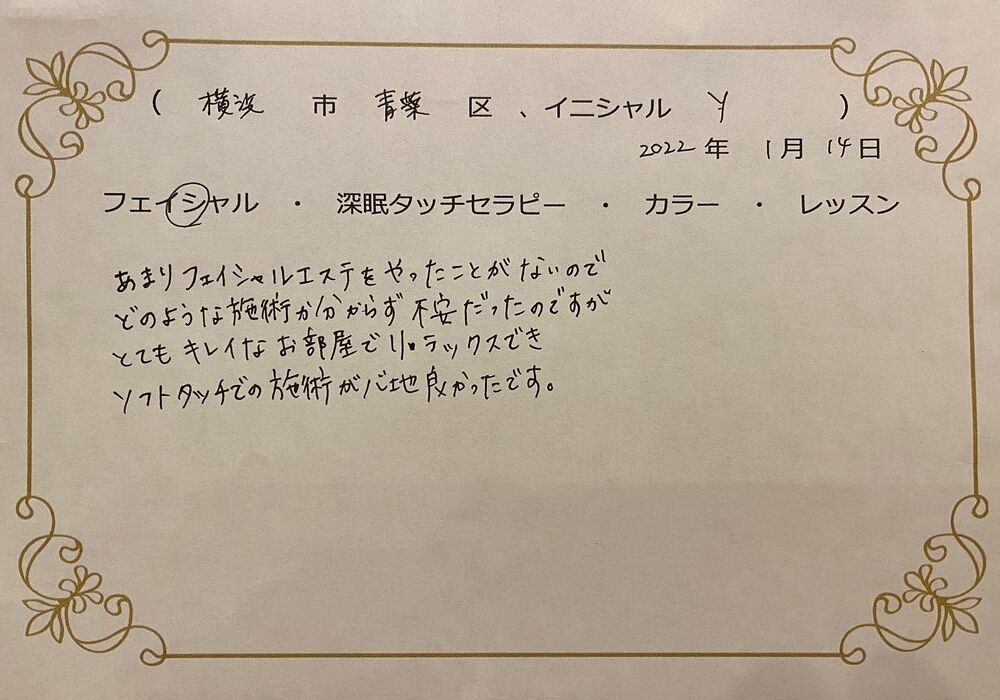 ( 横浜 市 青葉 区 、イニシャル Y )
2022 年 1月 14日
フェイシャル ・ 深眠タッチセラピー ・ カラー ・ レッスン
あまりフェイシャルエステをやったことがないので
どのような施術か分からず 不安だったのですが
とても キレイな お部屋で リラックスでき
ソフトタッチでの施術が心地良かったです。